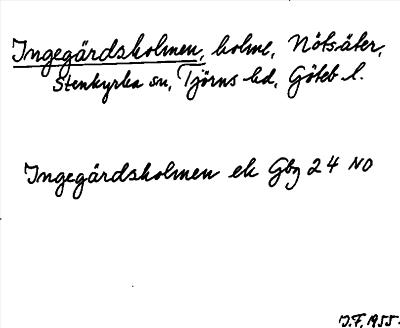 Ingegärdsholmen, holme, Nötsäter,
Stenkyrka sn, Tjörns hd, Göteb l.
Ingegärdsholmen ek Gbg 24 NO
J.F. 1955.